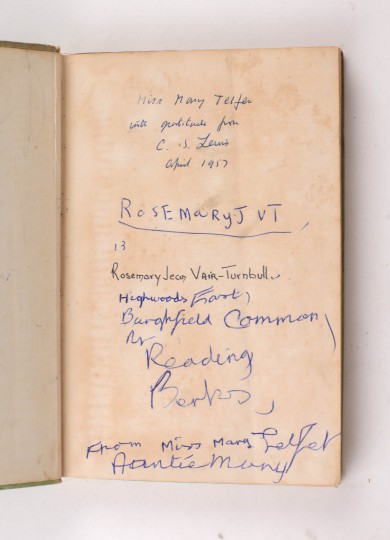 Miss Mary Telfer
with gratitude from
C. S. Lewis
April 1957
ROSEMARY J V T
13
Rosemary Jean VAIR-TURNBULL.
Highwoods Farm,
Burghfield Common,
Nr
Reading
Berks,
From Miss Mary Telfer
Auntie Mary